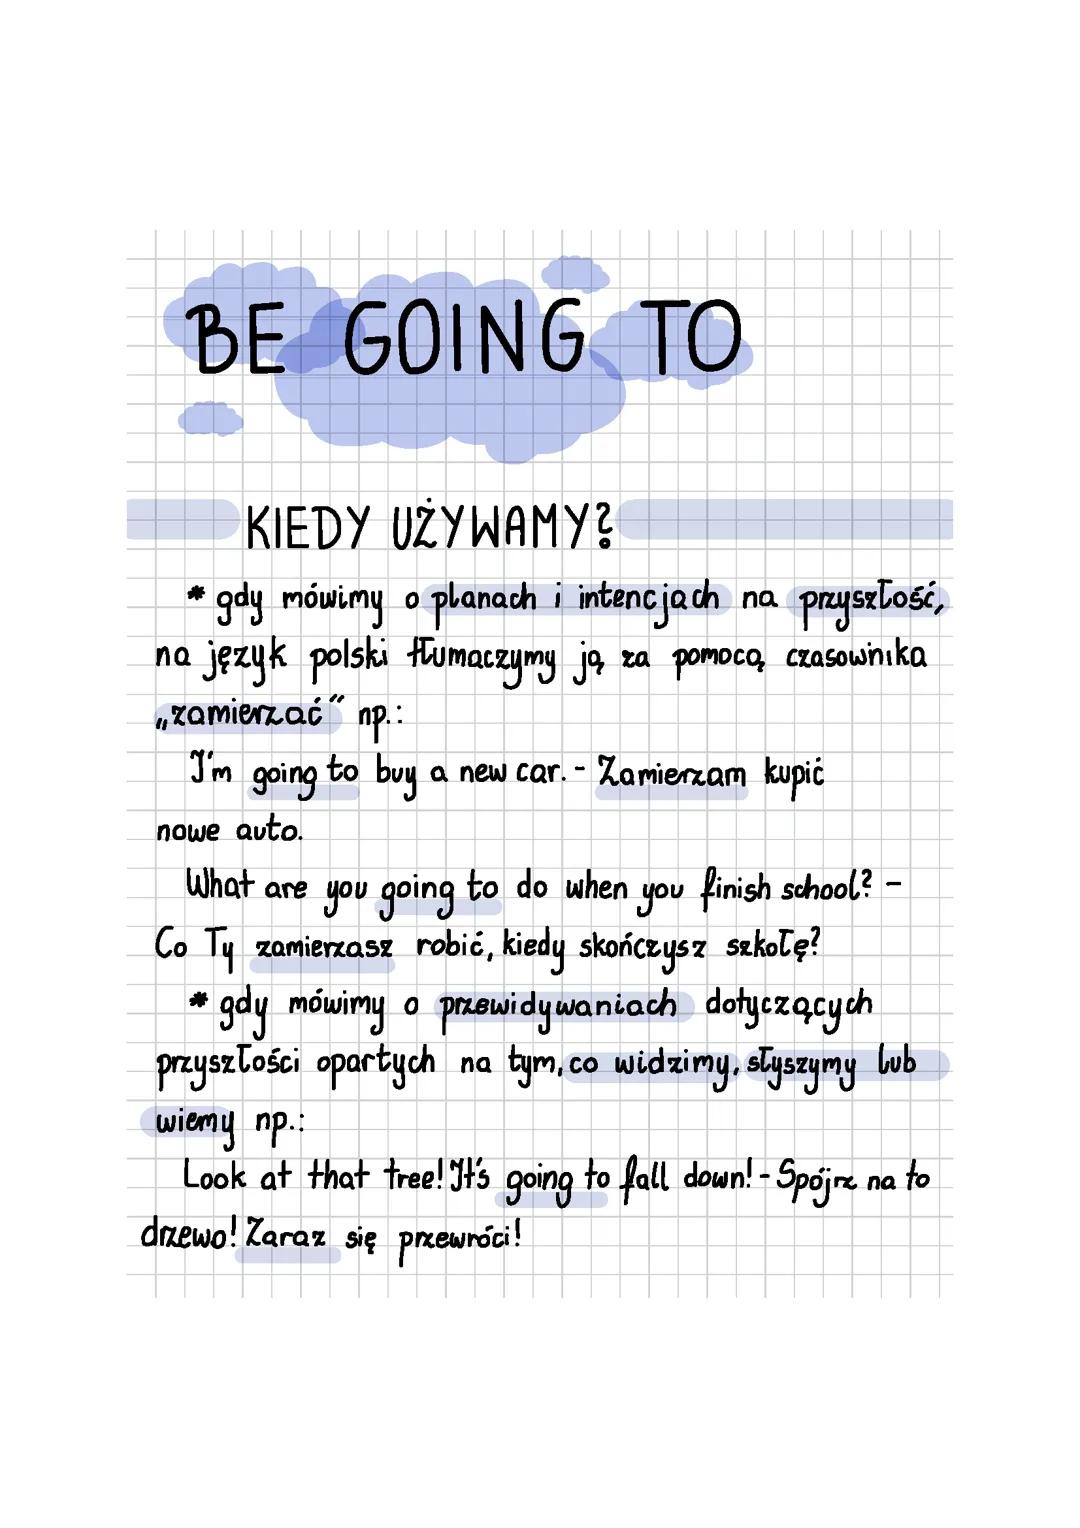 BE GOING TO
KIEDY UŻYWAMY?
* gdy mówimy o planach i intencjach na przyszłość,
na język polski tłumaczymy ją za pomocą czasownika
„zamierzać" np.:
I'm going to buy a new car. - Zamierzam kupić
nowe auto.
What are you going to do when you finish school? -
Co Ty zamierzasz robić, kiedy skończysz szkołę?
* gdy mówimy o przewidywaniach dotyczących
przyszłości opartych na tym, co widzimy, słyszymy lub
wiemy np.:
Look at that tree! It's going to fall down! - Spójrz na to
drzewo! Zaraz się przewróci!